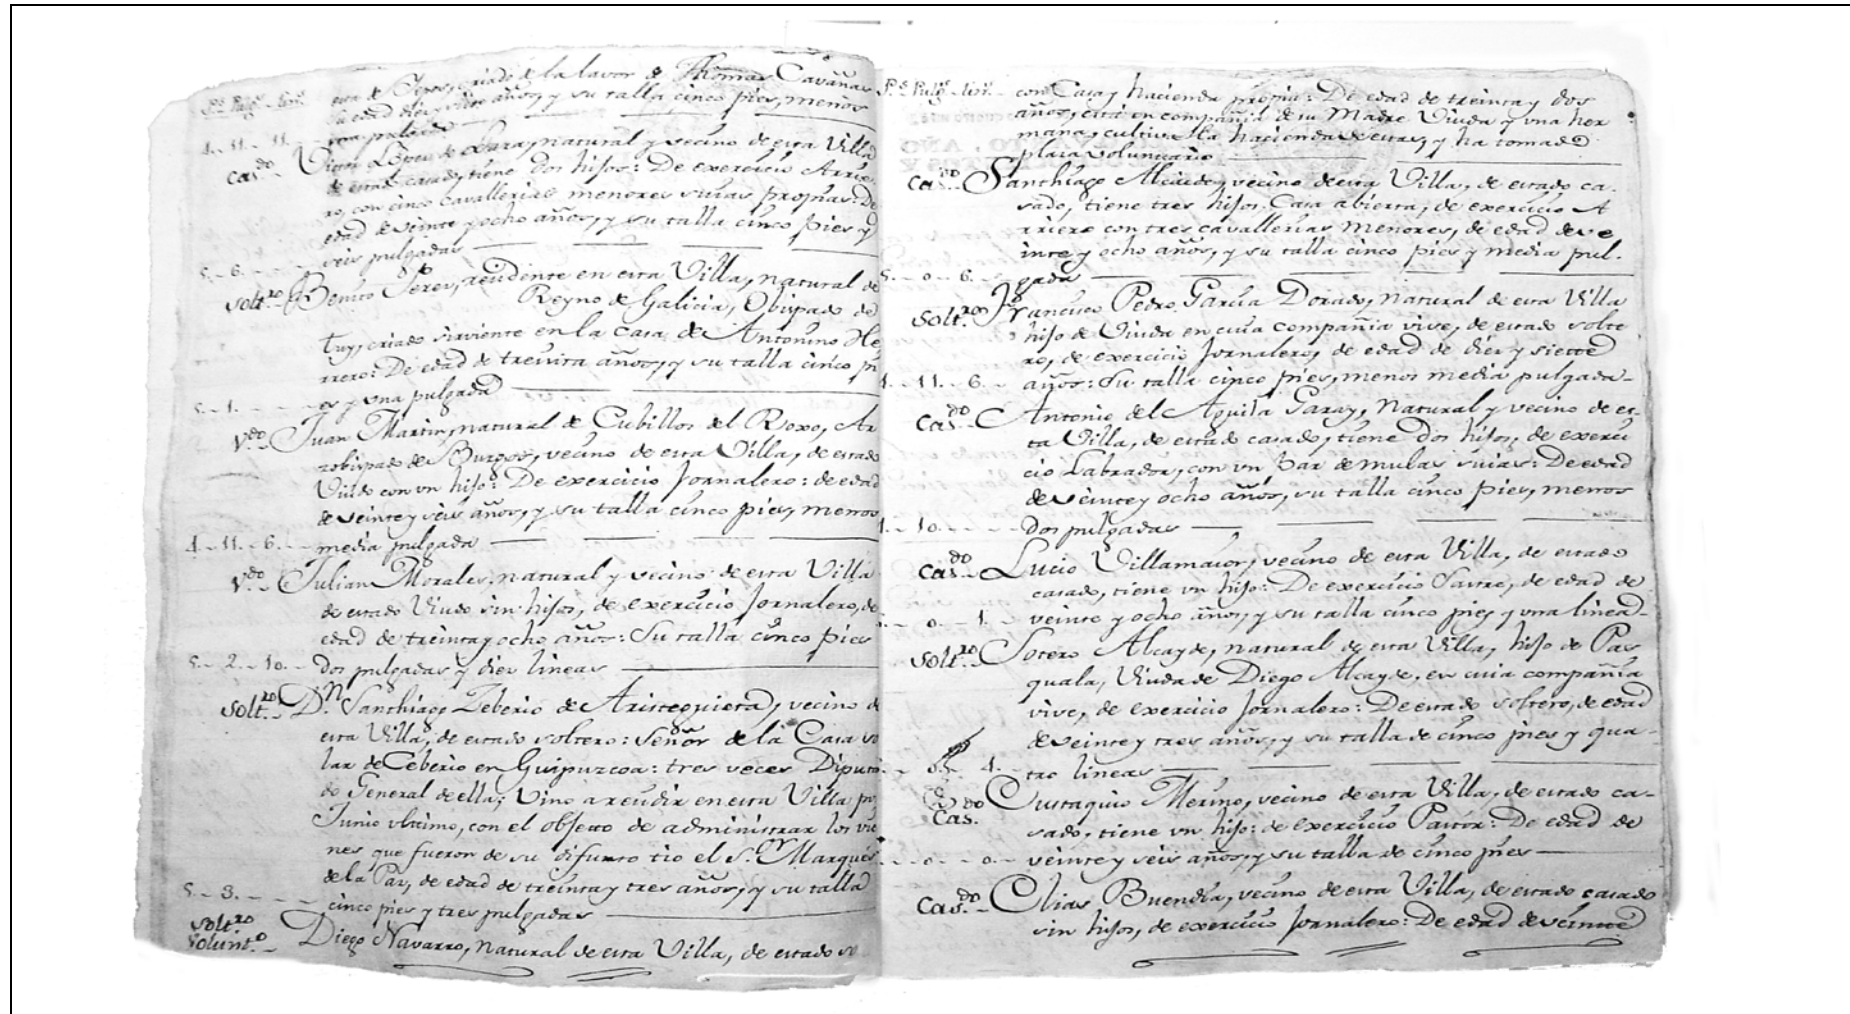 Ps. Pulgs. Lins. criado de la lavor de Thomas Cavañas
su edad diez y ocho años, y su talla cinco pies, menos
4.. 11.. 11.. una pulgada
Casdo.. Victor Lopez de Lara, natural y vecino de esta Villa
de estado casado, tiene dos hijos: De exercicio Arrie
ro, con cinco cavallerias menores suias propias: De
edad de veinte y ocho años, y su talla cinco pies y
5.. 6.. seis pulgadas
Soltro.. Benito Perez, residente en esta Villa, natural de
Reyno de Galicia, Obispado de
Tuy, criado sirviente en la casa de Antonino He
rrero: De edad de treinta años, y su talla cinco pi
5.. 1.. es y una pulgada
Vdo.. Juan Martin, natural de Cubillos del Roxo, Ar
zobispado de Burgos, vecino de esta Villa, de estado
Viudo con un hijo: De exercicio Jornalero: de edad
de veinte y seis años, y su talla cinco pies, menos
4.. 11.. 6.. media pulgada
Vdo.. Julian Morales, natural y vecino de esta Villa
de estado Viudo sin hijos, de exercicio Jornalero, de
edad de treinta y ocho años: Su talla cinco pies
5.. 2.. 10.. dos pulgadas y diez lineas
Soltro.. Dn. Santhiago Zeberio de Aristeguieta, vecino de
esta Villa, de estado soltero: Señor de la Casa so
lar de Ceberio en Guipuzcoa: tres veces Diputa
do General de ella; Vino a residir en esta Villa pr.
Junio ultimo, con el objeto de administrar los vie
nes que fueron de su difunto tio el Sor. Marqués
de la Paz, de edad de treinta y tres años, y su talla
5.. 3.. cinco pies y tres pulgadas
Soltro. Volunto.. Diego Navarro, natural de esta Villa, de estado so
Ps. Pulgs. Lins. con Casa y hacienda propia: De edad de treinta y dos
años, está en compañia de su Madre Viuda y una her
mana, cultiva la hacienda de estas, y ha tomado
plaza voluntario
Casdo.. Santhiago Alcaide, vecino de esta Villa, de estado ca-
sado, tiene tres hijos, Casa abierta, de exercicio A
rriero con tres cavallerias menores, de edad de ve
inte y ocho años, y su talla cinco pies y media pul-
5.. 0.. 6.. gada
Soltro.. Francisco Pedro Garcia Dorado, natural de esta Villa
hijo de Viuda en cuia compañia vive, de estado solte
ro, de exercicio Jornalero, de edad de diez y siete
4.. 11.. 6.. años: Su talla cinco pies, menos media pulgada-
Casdo.. Antonio del Aguila Garay, Natural y vecino de es-
ta Villa, de estado casado, tiene dos hijos, de exerci
cio Labrador, con un par de mulas suias: De edad
de veinte y ocho años, su talla cinco pies, menos
4.. 10.. dos pulgadas
Casdo.. Lucio Villamaior, vecino de esta Villa, de estado
casado, tiene un hijo: De exercicio Sastre, de edad de
.. 0.. 1.. veinte y ocho años, y su talla cinco pies y una linea-
Soltro.. Sotero Alcayde, natural de esta Villa, hijo de Pas
quala, Viuda de Diego Alcayde, en cuia compañia
vive, de exercicio Jornalero: De estado soltero, de edad
de veinte y tres años, y su talla de cinco pies y qua-
4.. tro lineas
Casdo. Eustaquio Merino, vecino de esta Villa, de estado ca-
sado, tiene un hijo: de exercicio Pastor: De edad de
.. 0.. 0.. veinte y seis años, y su talla de cinco pies
Casdo.. Elias Buendia, vecino de esta Villa, de estado casado
sin hijos, de exercicio Jornalero: De edad de veinte